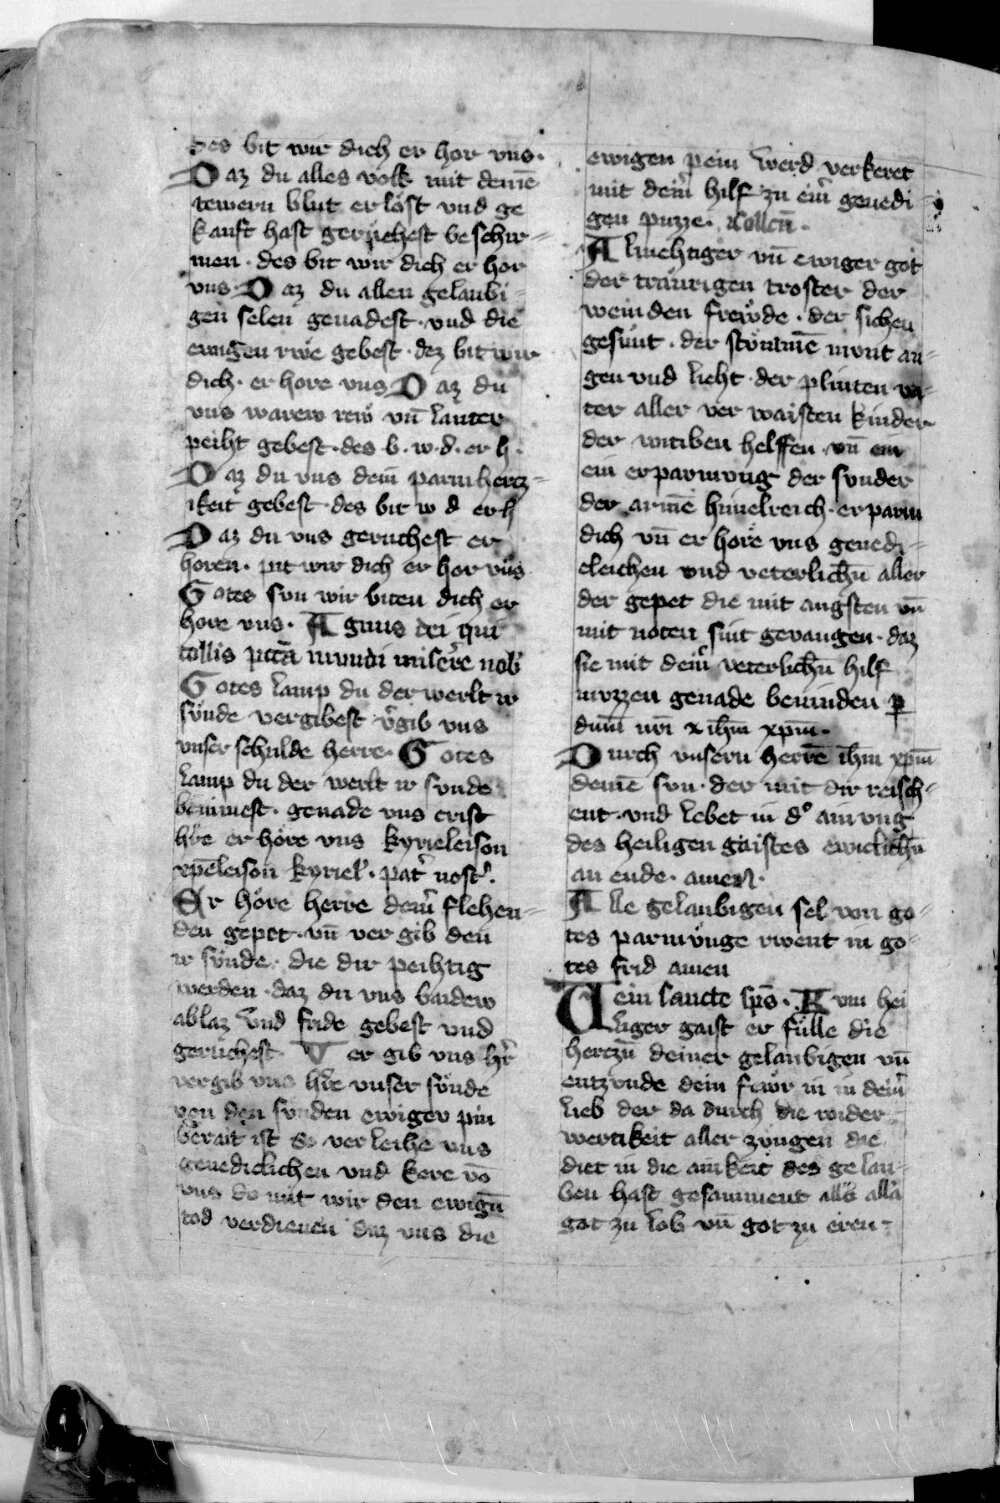 des bit wir dich er hor vns.
Daz du alles volk mit deinē
tewern blut er löst vnd ge
kauft hast gerüchest be schir=
men. des bit wir dich er hor
vns. Daz du allen gelaubi=
gen selen genadest. vnd die
ewigen rwe gebest. dez bit wir
dich. er hore vns Daz du
vns warew rew vn̄ lauter
peiht gebest. des b. w. d. er h.
Daz du vns dein parmhertz=
ikeit gebest. des bit w d erh
Daz du vns geruchest er
horen. pit wir dich er hor vns
Gotes sun wir biten dich er
hore vns. Agnus dei qui
tollis pctā mundi misere nob
Gotes lamp du der werlt ir
sünde vergibest vgib vns
vnser schulde herre. Gotes
lamp du der werlt ir sunde
benimest. genade vns crist
hre er höre vns kyrieleison
xpeleison kyriel. pat nost.
Er höre herre dein flehen=
den gepet. vn̄ ver gib den
ir sünde. die dir peihtig
werden. daz du vns baidew
ablaz vnd fride gebest vnd
gerüchest Ver gib vns hr
vergib vns hre vnser sünde
von den sunden ewiger pin
berait ist So ver leihe vns
genediclichen vnd kere vō
vns do mit wir den ewign̄
tod verdienen daz vns die
ewigen pein werd verkeret
mit dein hilf zu ein genedi
gen puzze. Collen̄.
Almehtiger vn̄ ewiger got
der traurigen troster der
weinden frewde. der sichen
gesunt. der stommē munt au=
gen vnd lieht. der plinten va=
ter aller ver waisten kinder
der witiben helffen vn̄ ein
ein erparmung der sunder
der armē himelreich. erparm
dich vn̄ er höre vns genedi=
cleichen vnd veterlichn̄ aller
der gepet die mit angsten vn̄
mit noten sint gevangen. daz
sie mit dein veterlichn̄ hilf
muzzen genade beuinden p
dnm̄ nri x ihm̄ xpm̄.
Durch vnsern herrē ihm̄ xpm̄
deinē sun. der mit dir reisch=
ent. vnd lebet in d ainung
des heiligen gaistes ewiclichn̄
an ende. amen.
Alle gelaubigen sel von go=
tes parmünge rwent in go=
tes frid amen
Vein sancte sps̄. Kum hei
liger gaist er fülle die
hertzn̄ deiner gelaubigen vn̄
entzunde dein fewr in in dein
lieb der da durch die wider
wertikeit aller zungen die
diet in die ainkeit des gelau=
ben hast gesamment alla alla
got zu lob vn̄ got zu eren.